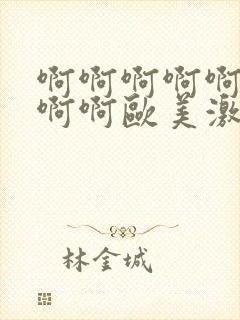 啊啊啊啊啊
啊啊歐美激
林金城